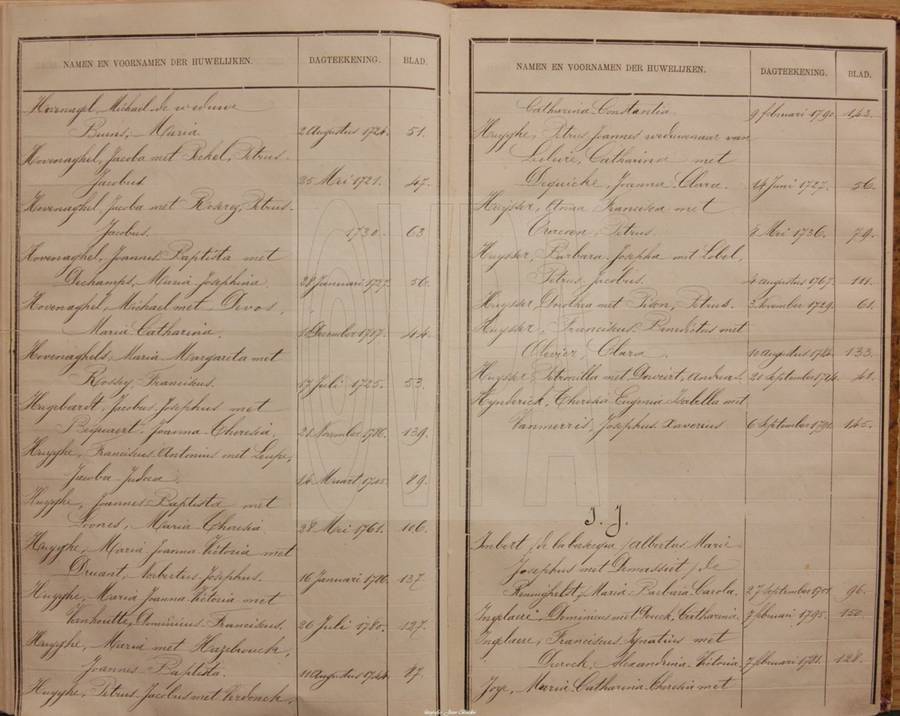 NAMEN EN VOORNAMEN DER HUWELIJKEN. DAGTEEKENING. BLAD.
Hovenagel, Michael de weduwe
Buins, Maria 2 Augustus 1724. 51.
Hovenaghel, Jacoba met Pekel, Petrus
Jacobus 25 Mei 1721. 47.
Hovenaghel, Jacoba met Roserg, Petrus
Jacobus. 1730. 63
Hovenaghel, Joannes Baptista met
Dechamps, Maria Josephina 28 Januari 1727. 56.
Hovenaghel, Michael met Devos,
Maria Catharina. 5 December 1717. 44.
Hovenaghels, Maria Margareta met
Rossey, Franciscus. 17 Juli 1725. 53.
Hugebaert, Jacobus Josephus met
Bequaert, Joanna Theresia. 21 November 1786. 139.
Huyghe, Franciscus Antonius met Leupe,
Jacoba Judoca. 16 Maart 1745. 89.
Huyghe, Joannes Baptista met
Maria Theresia 28 Mei 1761. 106.
Huyghe, Maria Joanna Victoria met
Druant, Norbertus Josephus. 16 Januari 1786. 137.
Huyghe, Maria Joanna Victoria met
Vanhoutte, Dominicus Franciscus. 26 Juli 1780. 127.
Huyghe, Maria met Hazebrouck,
Joannes Baptista. 11 Augustus 1744. 87.
Huyghe, Petrus Jacobus met
NAMEN EN VOORNAMEN DER HUWELIJKEN. DAGTEEKENING. BLAD.
Catharina Constantia. 9 februari 1790. 143.
Huyghe, Petrus Joannes weduwenaar van
Catharina met
Dequicke, Joanna Clara. 24 Juni 1727. 56.
Huyster, Anna Francisca met
Petrus. 7 Mei 1736. 79.
Huyster, Barbara Josepha met Lobel,
Petrus Jacobus. 4 augustus 1767. 111.
Huyster, Dorothea met Petrus. 3 1729. 61.
Huyster, Franciscus Benedictus met
Olivier, Clara. 10 augustus 1784. 133.
Huyster, Petronilla met Andreas. 20 september 1714. 41.
Hynderick, Theresia Eugenia Isabella met
Vanmerris, Josephus Xaverius 6 September 1791. 145.
I. J.
Imbert, albertus Marie
Josephus met
Maria Barbara Carola. 27 september 1751. 96.
Inglaere, Dominicus met Catharina. 9 februari 1795. 150.
Inglaere, Franciscus Ignatius met
Alexandrina Victoria. 7 februari 1781. 128.
Joye, Maria Catharina Theresia met